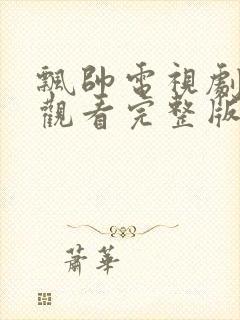 飄帥電視劇
觀看完整版
蕭華